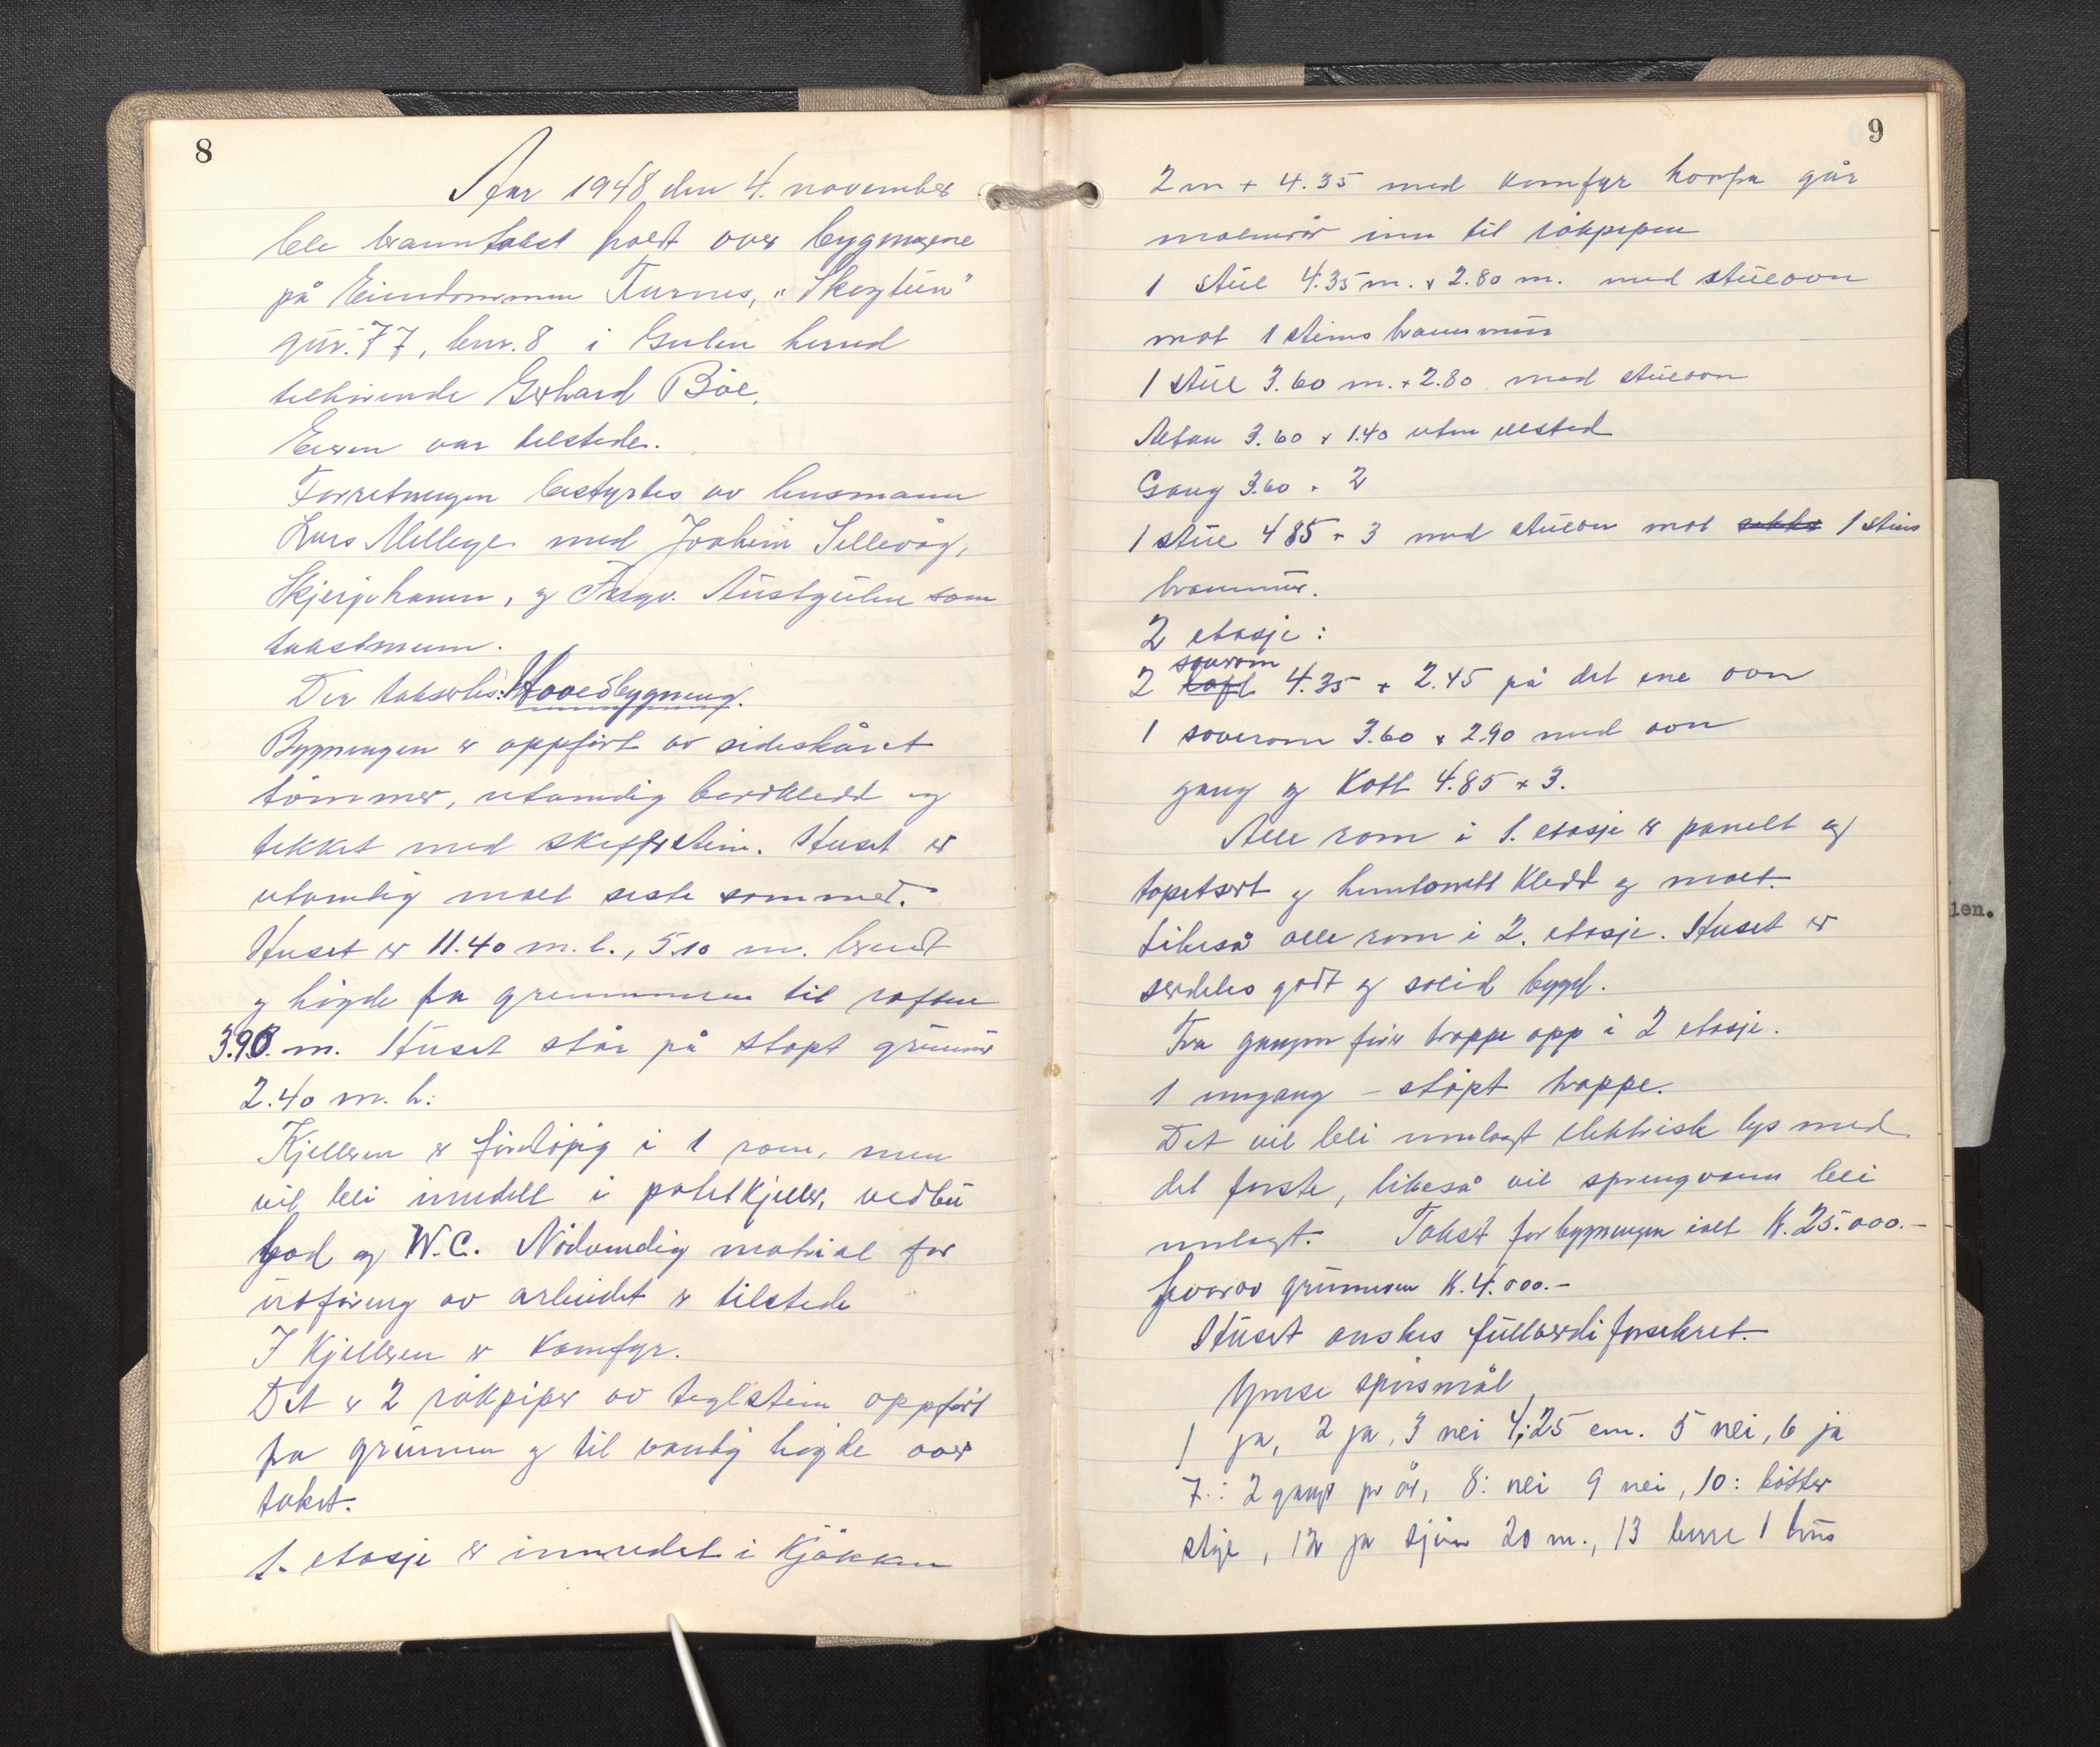 8
År 1948 den 4. november
ble branntakst holdt over bygningene
på Eiendommen Furnes, "Skogtun"
gnr. 77, bnr. 8 i Gulen herred
tilhørende Gerhard Böe.
Eieren var tilstede.
Forretningen bestyrtes av lensmann
Lars Mellege med Joakim Sellevåg,
Skjerjehamn, og Austgulen som
takstmenn.
Der takserts: Hovedbygning.
Bygningen er oppført av sideskåret
tömmer, utvendig bordkledd og
tekket med skifferstein. Huset er
utvendig malt siste sommer.
Huset er 11.40 m. l., 5.10 m. bredt
og høgde fra grunnmuren til raften
3.90. m. Huset står på støpt grunnmur
2.40 m. h.
Kjelleren er foreløpig i 1 rom, men
vil bli inndelt i potetkjeller, vedbu
bad og W.C. Nödvendig material for
utføring av arbeidet er tilstede
I Kjelleren er Komfyr.
Det er 2 rökpiper av teglstein oppfört
fra grunnen og til vanlig høgde over
taket.
1. etasje er innredet i Kjökken
9
2 m × 4.35 med komfyr horfra går
malmrör inn til rökpipen
1 stue 4.35 m. × 2.80 m. med stueovn
mot 1 steins brannmur
1 stue 3.60 m. × 2.80 med stueovn
Altan 3.60 × 1.40 uten ildsted
Gang 3.60 × 2
1 stue 4 85 × 3 med stueovn mot 1 steins
brannmur.
2 etasje:
2 soverom 4.35 × 2.45 på det ene ovn
1 soverom 3.60 × 2.90 med ovn
gang og Kott 4.85 × 3.
Alle rom i 1. etasje er panelt og
tapetsert og huntonitt Kledd og malt.
Likeså alle rom i 2. etasje. Huset er
serdeles godt og solid bygd.
Fra gangen förer trappe opp i 2 etasje.
1 inngang – stöpt trappe.
Det vil bli innlagt elektrisk lys med
det første, likeså vil springvann bli
innlagt. Takst for bygningen ialt K. 25.000.–
hvorav grunnmuren K. 4.000.–
Huset ønskes fullverdiforsikret.
Ymse spörsmål
1 ja, 2 ja, 3 nei 4; 25 cm. 5 nei, 6 ja
7: 2 ganger pr år, 8: nei 9 nei, 10: bötter
stige, 12 ja sjöen 20 m., 13 berre 1 hus
len.